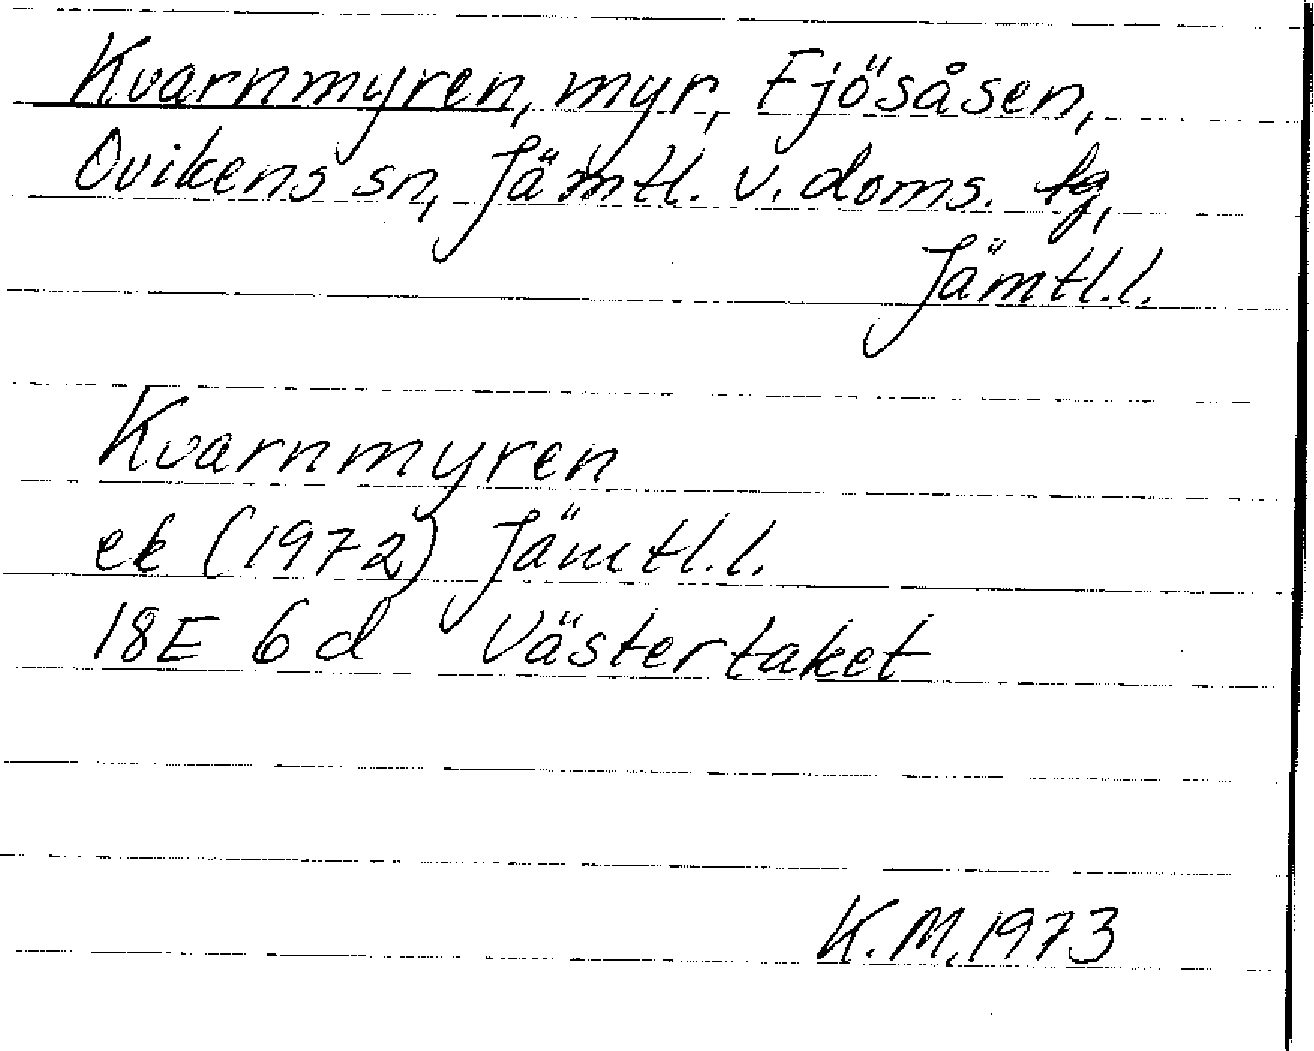 Kvarnmyren, myr, Fjösåsen,
Ovikens sn, Jämtl. v. doms. tg,
Jämtl.l.
Kvarnmyren
ek (1972) Jämtl.l.
18E 6d Västertaket
K.M.1973